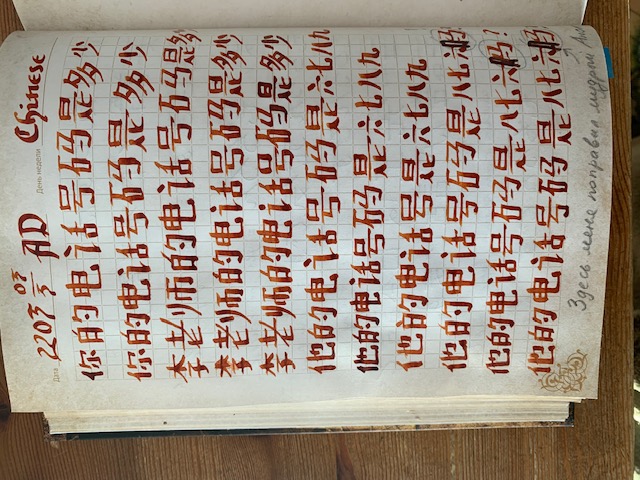 Дата 2203 07/3 AD День недели Chinese
你的电话号码是多少
你的电话号码是多少
李老师的电话号码是多少
李老师的电话号码是多少
李老师的电话号码是多少
他的电话号码是六七八九
他的电话号码是六七八九
他的电话号是六七八九
他的电话号码是八七六吗?
他的电话号码是八七六吗?
他的电话号码是八七六吗?
Здесь меня поправил мудрый